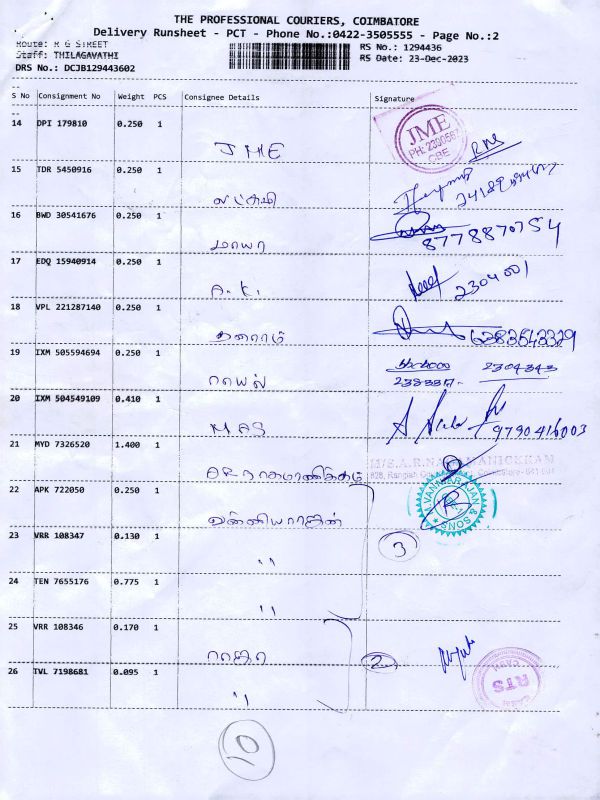 THE PROFESSIONAL COURIERS, COIMBATORE
Delivery Runsheet - PCT - Phone No.:0422-3505555 - Page No.:2
Route: R G STREET
RS No.: 1294436
Staff: THILAGAVATHI
RS Date: 23-Dec-2023
DRS No.: DCJB129443602
S No Consignment No Weight PCS Consignee Details Signature
14 DPI 179810 0.250 1
JME
JME
CBE
15 TDR 5450916 0.250 1
லட்சுமி
16 BWD 30541676 0.250 1
மாயா
8778870754
17 EDQ 15940914 0.250 1
A.K.
2304001
18 VPL 221287140 0.250 1
19 IXM 505594694 0.250 1
ராயல்
2304343
20 IXM 504549109 0.410 1
MAS
9790416003
21 MYD 7326520 1.400 1
22 APK 722050 0.250 1
23 VRR 108347 0.130 1
"
3
24 TEN 7655176 0.775 1
"
25 VRR 108346 0.170 1
ராஜா
2
26 TVL 7198681 0.095 1
"
RTS
10